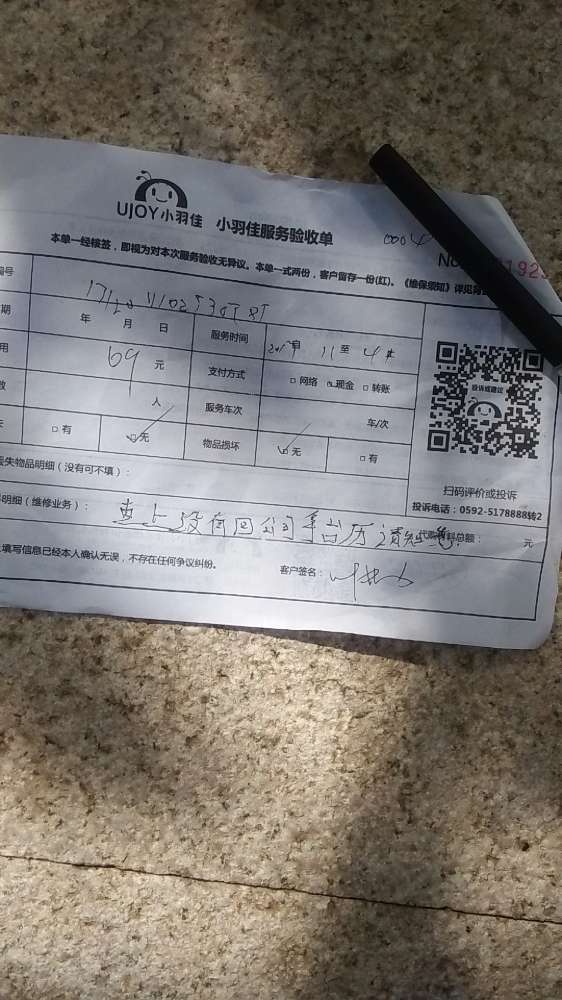 UJOY小羽佳 小羽佳服务验收单
0004
No 192
本单一经核签，即视为对本次服务验收无异议。本单一式两份，客户留存一份(红)。《维保须知》详见背
编号
期 年 月 日 服务时间 自 11 至 4
用 69 元 支付方式 □网络 现金 □转账
数 人 服务车次 车/次
□有 □无 物品损坏 □无 □有
投诉或建议
扫码评价或投诉
投诉电话：0592-5178888转2
失物品明细（没有可不填）：
明细（维修业务）： 没有回公司 台历请 料总额： 元
填写信息已经本人确认无误，不存在任何争议纠纷。 客户签名：